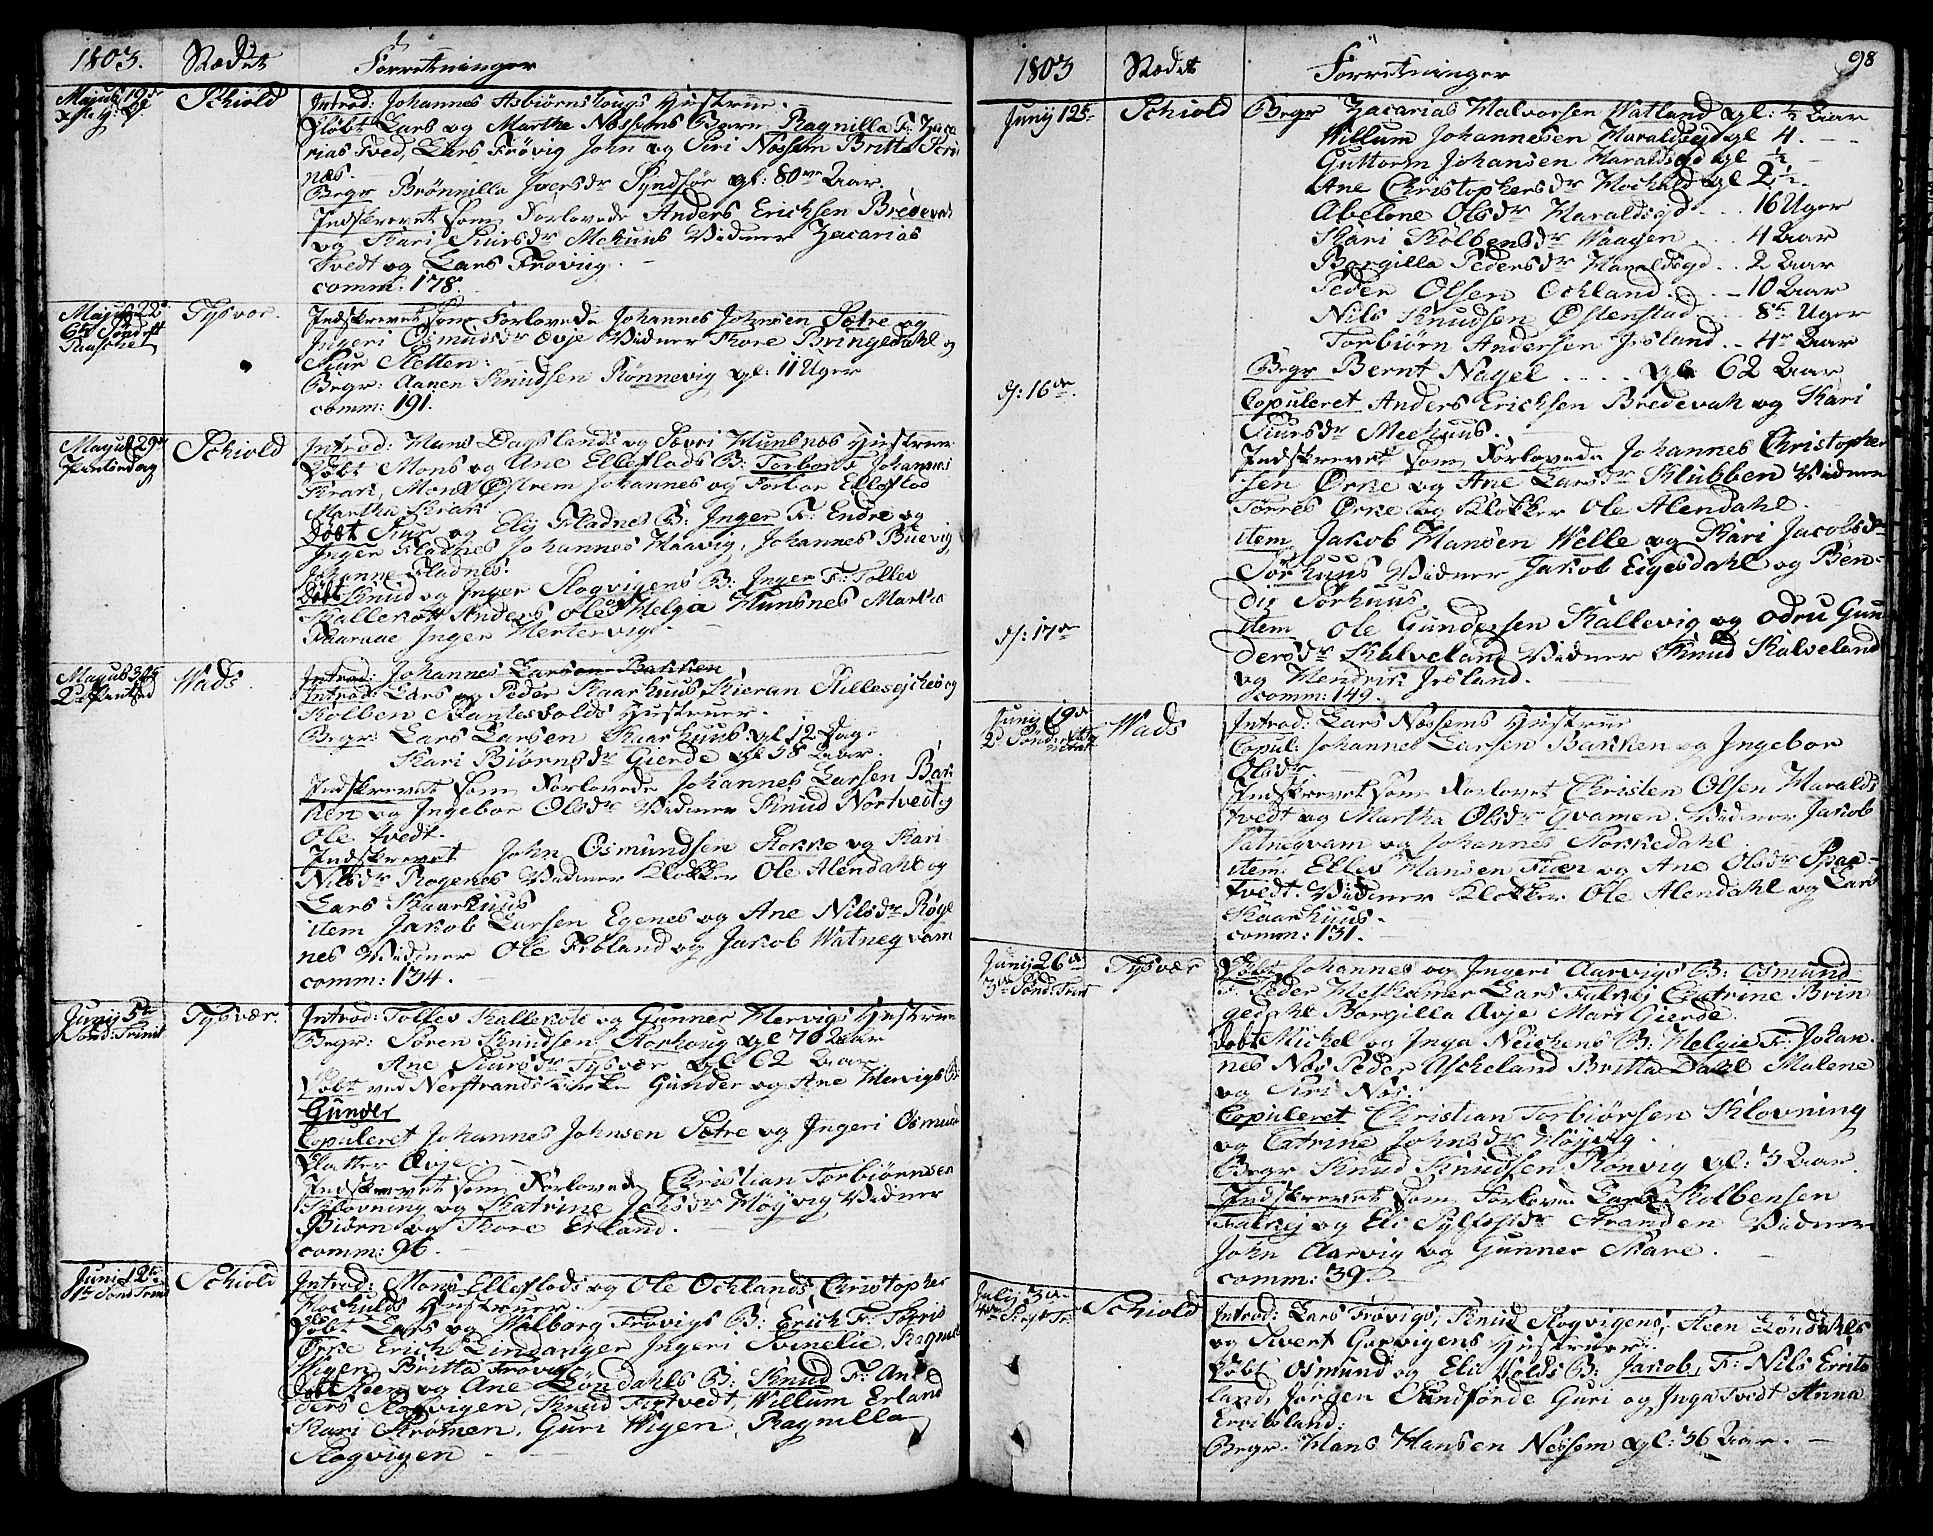 1803. Stædet Forretninger
Majus 19de Schiold Introd: Johannes Asbiørnshougs Hustrue.
Døbt Lars og Marthe Nessems Barn Ragnilla F: Zaca
rias Tved, Lars Frøvig John og Siri Nessem Britte
næs.
Begr Brønnilla Iversdr Syndføe gl: 80 Aar.
Indskrevet som Forlovede Anders Erichsen Bredevah
og Kari Siursdr Mehuus Vidner Zacarias
Tvedt og Lars Frøvig.
comm: 178.
Majus 22de Tysvær. Indskrevet som Forlovede Johannes Johnsen Sætre og
Ingeri Osmundsdr Øvje Vidner Tore Bringedahl og
Siur Sletten.
Begr: Aanen Knudsen Rønnevig gl: 11 Uger
comm: 191.
Majus 29de Schiold Introd: Hans Dagslands og Sævri Hunsnes Hustruer
Pintsedag Døbt Mons og Ane Elleflads B: Torbor F: Johannes
Krari, Mons Østrem Johannes og Torbor Elleflod
Martha Skrar
Døbt Siur og Eli Fladnes B: Inger F: Endre og
Inger Fladnes Johannes Haavig, Johannes Buevig
Johanne Fladnes.
Døbt Knud og Inger Slogvigens B: Inger F: Tollev
Kallekott Anders Ole og Helga Hunsnes Martha
Inger Hertervig.
Majus 30te Wads. Introd: Johannes Larsen Bakken
2d Pintsed Introd: Lars og Peder Skaarhuus Kieran og
Kolben Hustruer.
Begr: Lars Larsen Skaarhuus gl 12 Dage
Kari Biørnsdr Gierde gl 58 Aar.
Indskrevet som Forlovede Johannes Larsen Bak
ken og Ingebor Olsdr Vidner Knud Nortvedt og
Ole Tvedt.
Indskrevet John Osmundsen Stokke og Kari
Nilsdr Røgenes Vidner Klokker Ole Alendahl og
Lars Skaarhuus
item Jakob Larsen Egenes og Ane Nilsdr Røge
nes Vidner Ole Frøland og Jakob Watneqvam
comm: 134.
Junij 5te Tysvær. Introd: Tollev Kallekote og Gunner Hervigs Hustruer
Sønd: Trinit Begr: Søren Knudsen Storhoug gl 70 Aar
Ane Siursdr Tysvær gl 62 Aar.
Døbt ved Nerstrands Kirke Gunder og Ane Hervigs B:
Gunder
Copuleret Johannes Johnsen Sætre og Ingeri Osmunds
Datter Øvje.
Indskrevet som Forlovede Christian Torbiørnsen
Klovning og Katrine Johsdr Høyvig Vidner
Biørn og Tore Erland.
comm: 96.
Junij 12te Schiold Introd: Mons Elleflods og Ole Ochlands, Christopher
1ste Sønd Trinit Hochulds Hustruer.
Døbt Lars og Walborg Frøvigs B: Erich F: Torris
Ørke Erich Lindanger Ingeri Svinelie,
Wigen Britta Frøvig
Døbt Steen og Ane Løndahls B: Knud F: An
ders Slogvigen, Knud Tirtvedt, Willum Erland
Kari Strømen, Guri Wigen, Ragnilla
Slogvigen
1803 Stædet Forretninger 98
Junij 12te Schiold Begr Zacarias Halvorsen Watland gl: ½ Aar
Willum Johannesen Haraldsgd gl 4.
Guttorm Johansen Haraldsgd gl ½
Ane Christophersdr Hochuld gl 2½
Abelone Olsdr Haraldsgd 16 Uger
Kari Kolbensdr Waagen 4 Aar
Borgilla Pedersdr Haraldsgd 2 Aar
Peder Olsen Ochland 10 Aar
Nils Knudsen Østenstad 8te Uger
Torbiørn Andersen Irsland. 4re Aar
Begr Bernt Nagel gl 62 Aar
d: 16de. Copuleret Anders Erichsen Bredevah og Kari
Siursdr Meehuus.
Indskrevet som Forlovede Johannes Christopher
sen Ørke og Ane Larsdr Klubben Vidner
Torres Ørke og Klokker Ole Alendahl.
item Jakob Hansen Welle og Kari Jacobsdr
Sørhuus Vidner Jakob Eigesdahl og Ben-
dix Sørhuus
d: 17de item Ole Gundersen Kallevig og Odru Gun
dersdr Skalveland Vidner Knud Skalveland
og Hendrik Irsland.
comm: 149.
Junij 19de Wads Introd: Lars Nessems Hustrue
2d Sønd: Copul: Johannes Larsen Bakken og Ingebor
Olsdr
Indskrevet som Forlovet Christen Olsen Haralds
tvedt og Martha Olsdr Gvamen. Vidner Jakob
Vatneqvam og Johannes Stokkedahl
item Ellev Hansen Fiæn og Ane Olsdr
tvedt. Vidner Klokker Ole Alendahl og Lars
Skaarhuus.
comm: 131.
Junij 26de Tysvær Døbt Johannes og Ingeri Aarvigs B: Osmund
3de Sønd: Trint F. Peder Heskamer Lars Falkej Catrine Brin
gedahl Borgilla Øvje Mari Gierde.
Døbt Mickel og Inga Neichens B: Helgie F: Johan
nes Næs Peder Ascheland Britta Dahl Malene
og Siri Næs.
Copuleret Christian Torbiørsen Klovning
og Catrine Johnsdr Høyvig.
Begr Knud Knudsen Rønvig gl: 3 Aar.
Indskrevet som Forlovede Lars Kolbensen
Falkej og Eli Sylfestdr Stranden Vidner
John Aarvig og Gunner Skare.
comm: 39.
Julij 3de Schiold Introd: Lars Frøvigs, Knud Slogvigens, Steen Løndahls
og Sivert Garvigens Hustruer.
Døbt Osmund og Eli Wolds B: Jakob, F: Nils Errits
land, Jørgen Sundførde Guri og Inga Tvedt Anna
Erritsland.
Begr. Hans Hansen Nessem gl: 36 Aar.